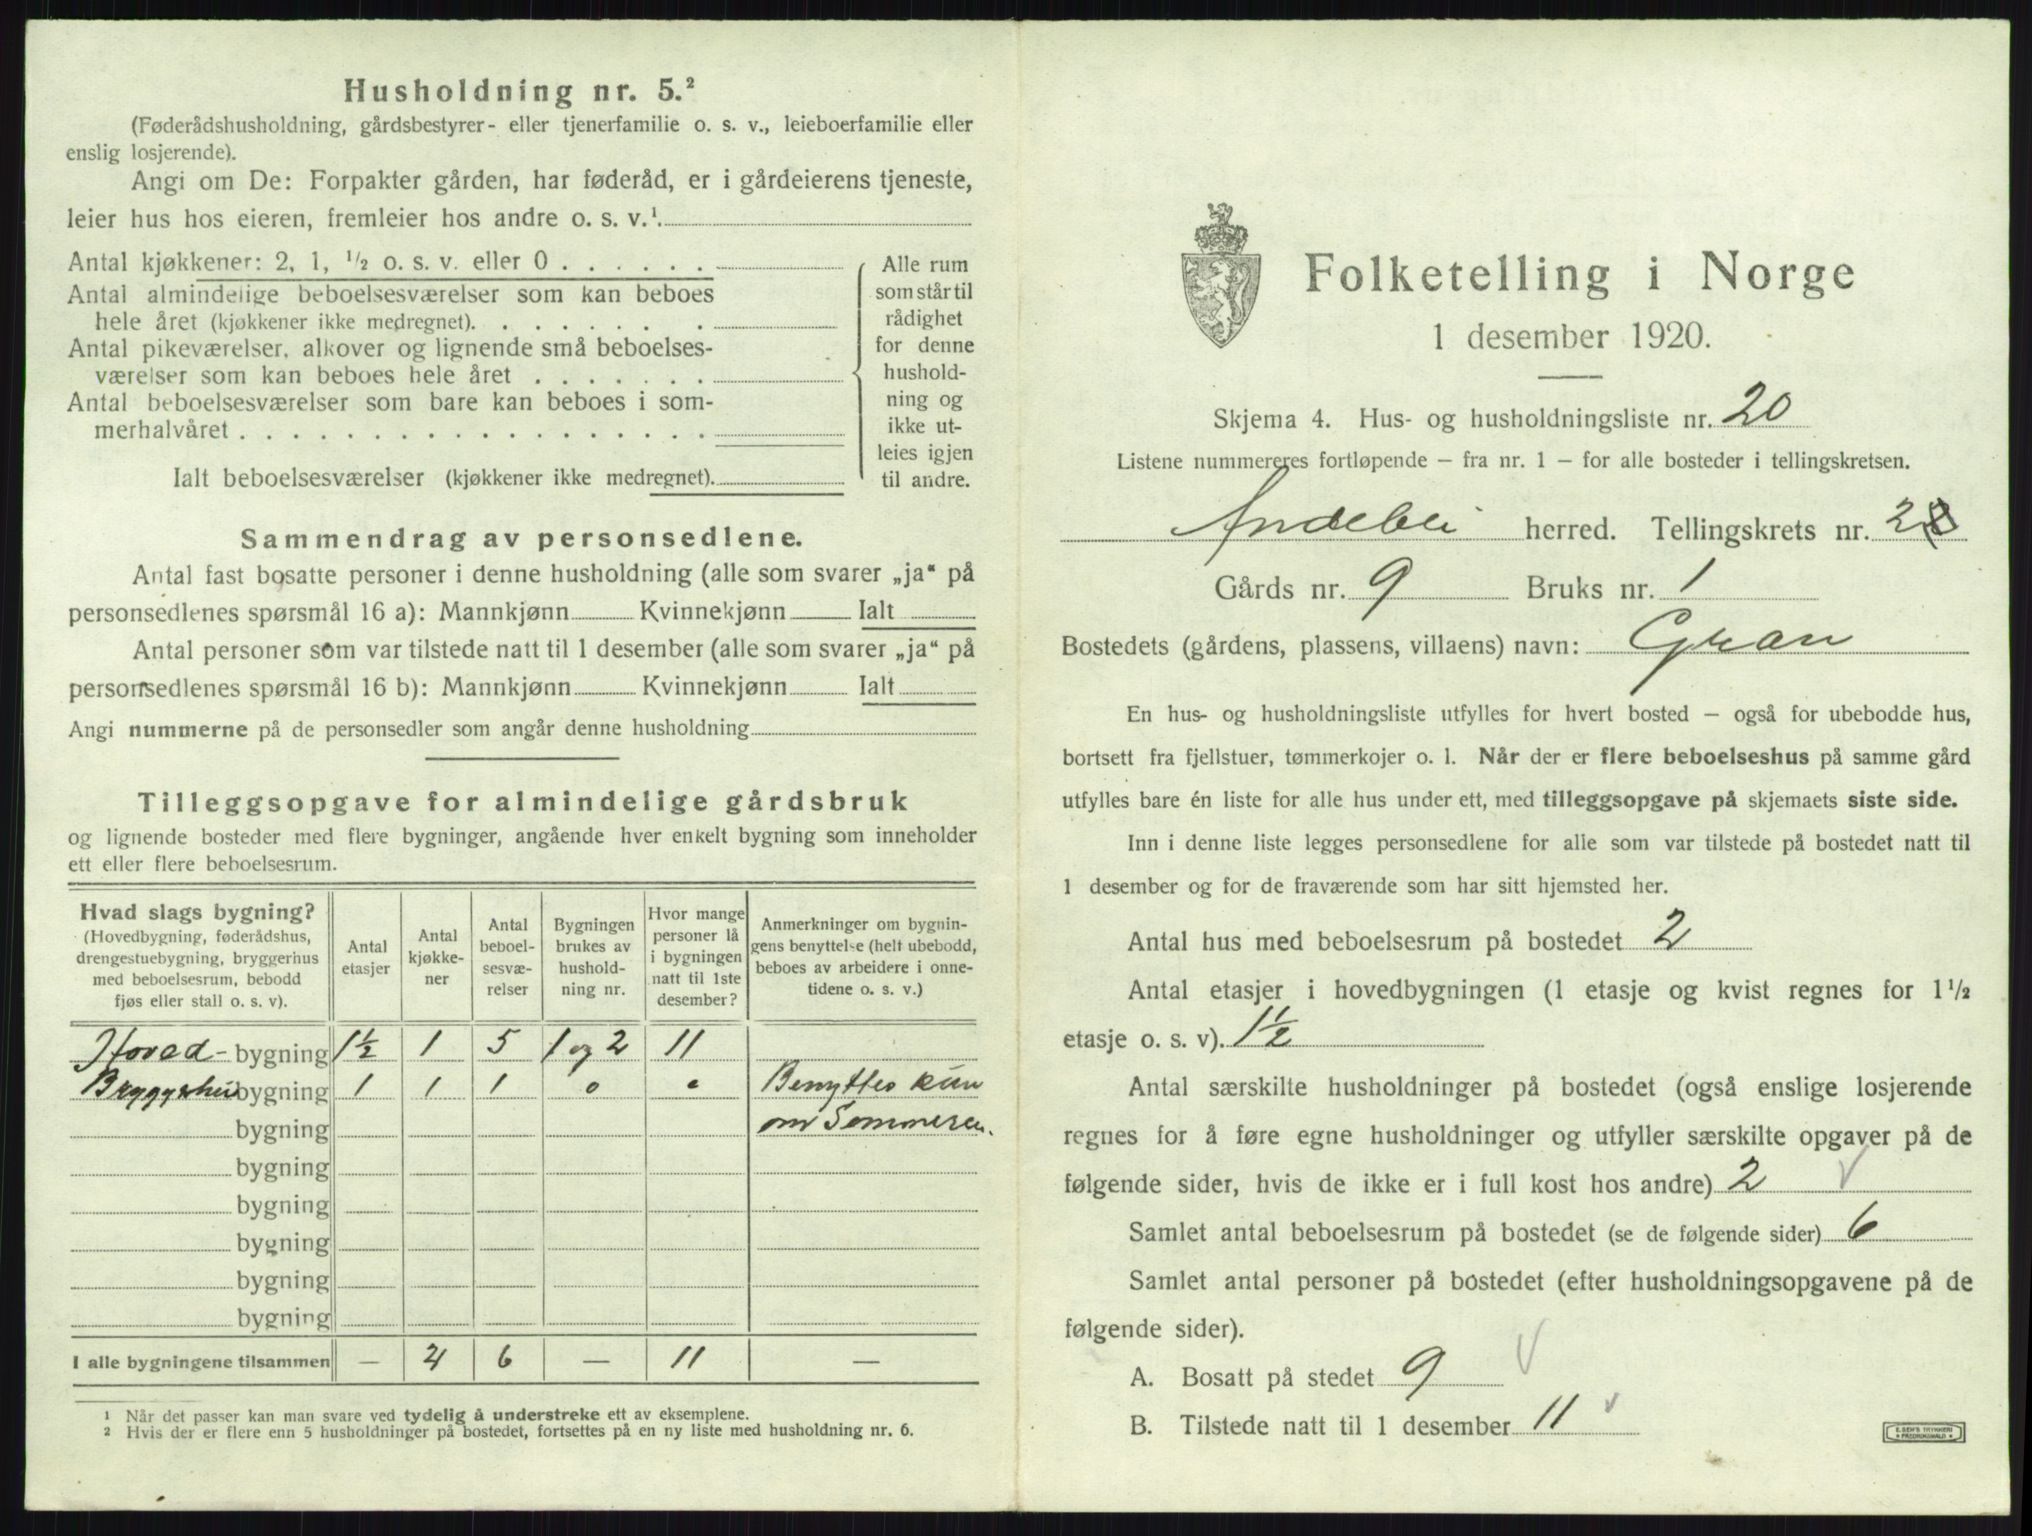 Husholdning nr. 5.²
(Føderådshusholdning, gårdsbestyrer- eller tjenerfamilie o. s. v., leieboerfamilie eller
enslig losjerende).
Angi om De: Forpakter gården, har føderåd, er i gårdeierens tjeneste,
leier hus hos eieren, fremleier hos andre o. s. v.¹.
Antal kjøkkener: 2, 1, ½ o. s. v. eller 0 . . . . . .
Antal almindelige beboelsesværelser som kan beboes
hele året (kjøkkener ikke medregnet). . . . . . . .
Antal pikeværelser, alkover og lignende små beboelses-
værelser som kan beboes hele året . . . . . . .
Antal beboelsesværelser som bare kan beboes i som-
merhalvåret . . . . . . . . . . . . . . . . . .
Ialt beboelsesværelser (kjøkkener ikke medregnet).
Alle rum
som står til
rådighet
for denne
hushold-
ning og
ikke ut-
leies igjen
til andre.
Sammendrag av personsedlene.
Antal fast bosatte personer i denne husholdning (alle som svarer „ja“ på
personsedlenes spørsmål 16 a): Mannkjønn Kvinnekjønn Ialt
Antal personer som var tilstede natt til 1 desember (alle som svarer „ja“ på
personsedlenes spørsmål 16 b): Mannkjønn Kvinnekjønn Ialt
Angi nummerne på de personsedler som angår denne husholdning
Tilleggsopgave for almindelige gårdsbruk
og lignende bosteder med flere bygninger, angående hver enkelt bygning som inneholder
ett eller flere beboelsesrum.
Hvad slags bygning?
(Hovedbygning, føderådshus,
drengestuebygning, bryggerhus
med beboelsesrum, bebodd
fjøs eller stall o. s. v).
Antal
etasjer
Antal
kjøkke-
ner
Antal
beboel-
sesvæ-
relser
Bygningen
brukes av
hushold-
ning nr.
Hvor mange
personer lå
i bygningen
natt til 1ste
desember?
Anmerkninger om bygnin-
gens benyttelse (helt ubebodd,
beboes av arbeidere i onne-
tidene o. s. v.)
Hoved- bygning 1½ 1 5 1 og 2 11
Bryggerhus bygning 1 1 1 0 0 Benyttes kun
bygning om Sommeren.
bygning
bygning
bygning
bygning
bygning
I alle bygningene tilsammen — 2 6 — 11 —
¹ Når det passer kan man svare ved tydelig å understreke ett av eksemplene.
² Hvis der er flere enn 5 husholdninger på bostedet, fortsettes på en ny liste med husholdning nr. 6.
Folketelling i Norge
1 desember 1920.
Skjema 4. Hus- og husholdningsliste nr. 20
Listene nummereres fortløpende – fra nr. 1 – for alle bosteder i tellingskretsen.
Andebu herred. Tellingskrets nr. 2
Gårds nr. 9 Bruks nr. 1
Bostedets (gårdens, plassens, villaens) navn: Gran
En hus- og husholdningsliste utfylles for hvert bosted – også for ubebodde hus,
bortsett fra fjellstuer, tømmerkojer o. l. Når der er flere beboelseshus på samme gård
utfylles bare én liste for alle hus under ett, med tilleggsopgave på skjemaets siste side.
Inn i denne liste legges personsedlene for alle som var tilstede på bostedet natt til
1 desember og for de fraværende som har sitt hjemsted her.
Antal hus med beboelsesrum på bostedet 2
Antal etasjer i hovedbygningen (1 etasje og kvist regnes for 1½
etasje o. s. v). 1½
Antal særskilte husholdninger på bostedet (også enslige losjerende
regnes for å føre egne husholdninger og utfyller særskilte opgaver på de
følgende sider, hvis de ikke er i full kost hos andre) 2
Samlet antal beboelsesrum på bostedet (se de følgende sider) 6
Samlet antal personer på bostedet (efter husholdningsopgavene på de
følgende sider).
A. Bosatt på stedet 9
B. Tilstede natt til 1 desember 11